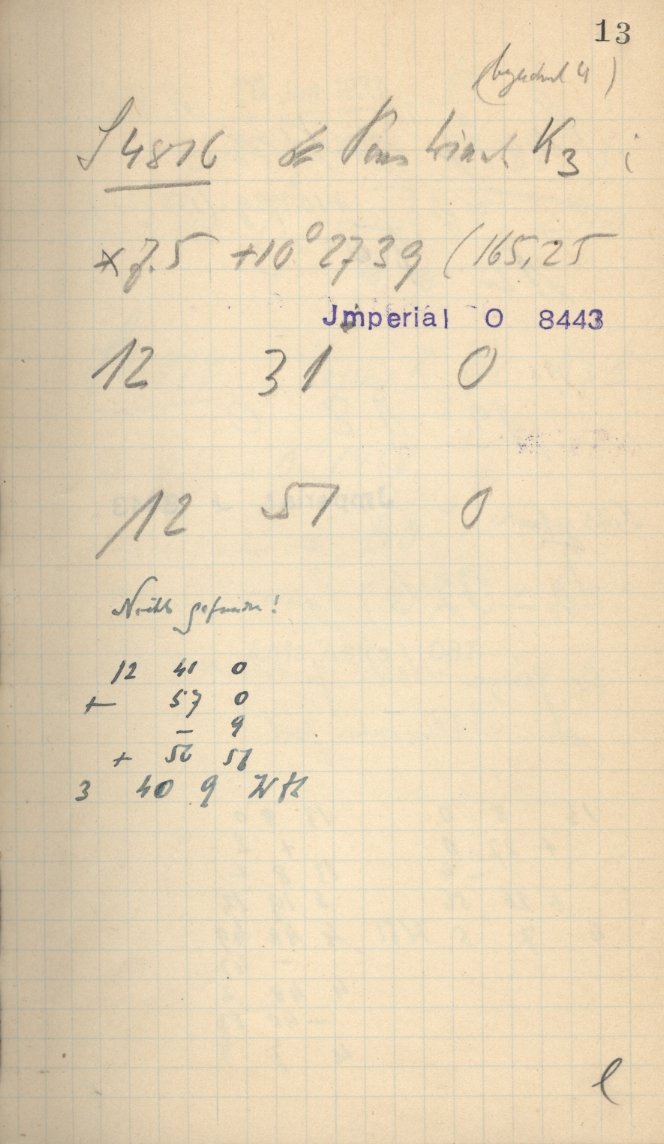 13
S 4816 K3
* 7.5 +10° 27 39 (165,25
Jmperial O 8443
12 31 0
12 51 0
Nichts gefunden!
12 41 0
+ 57 0
– 9
+ 56 51
3 40 9